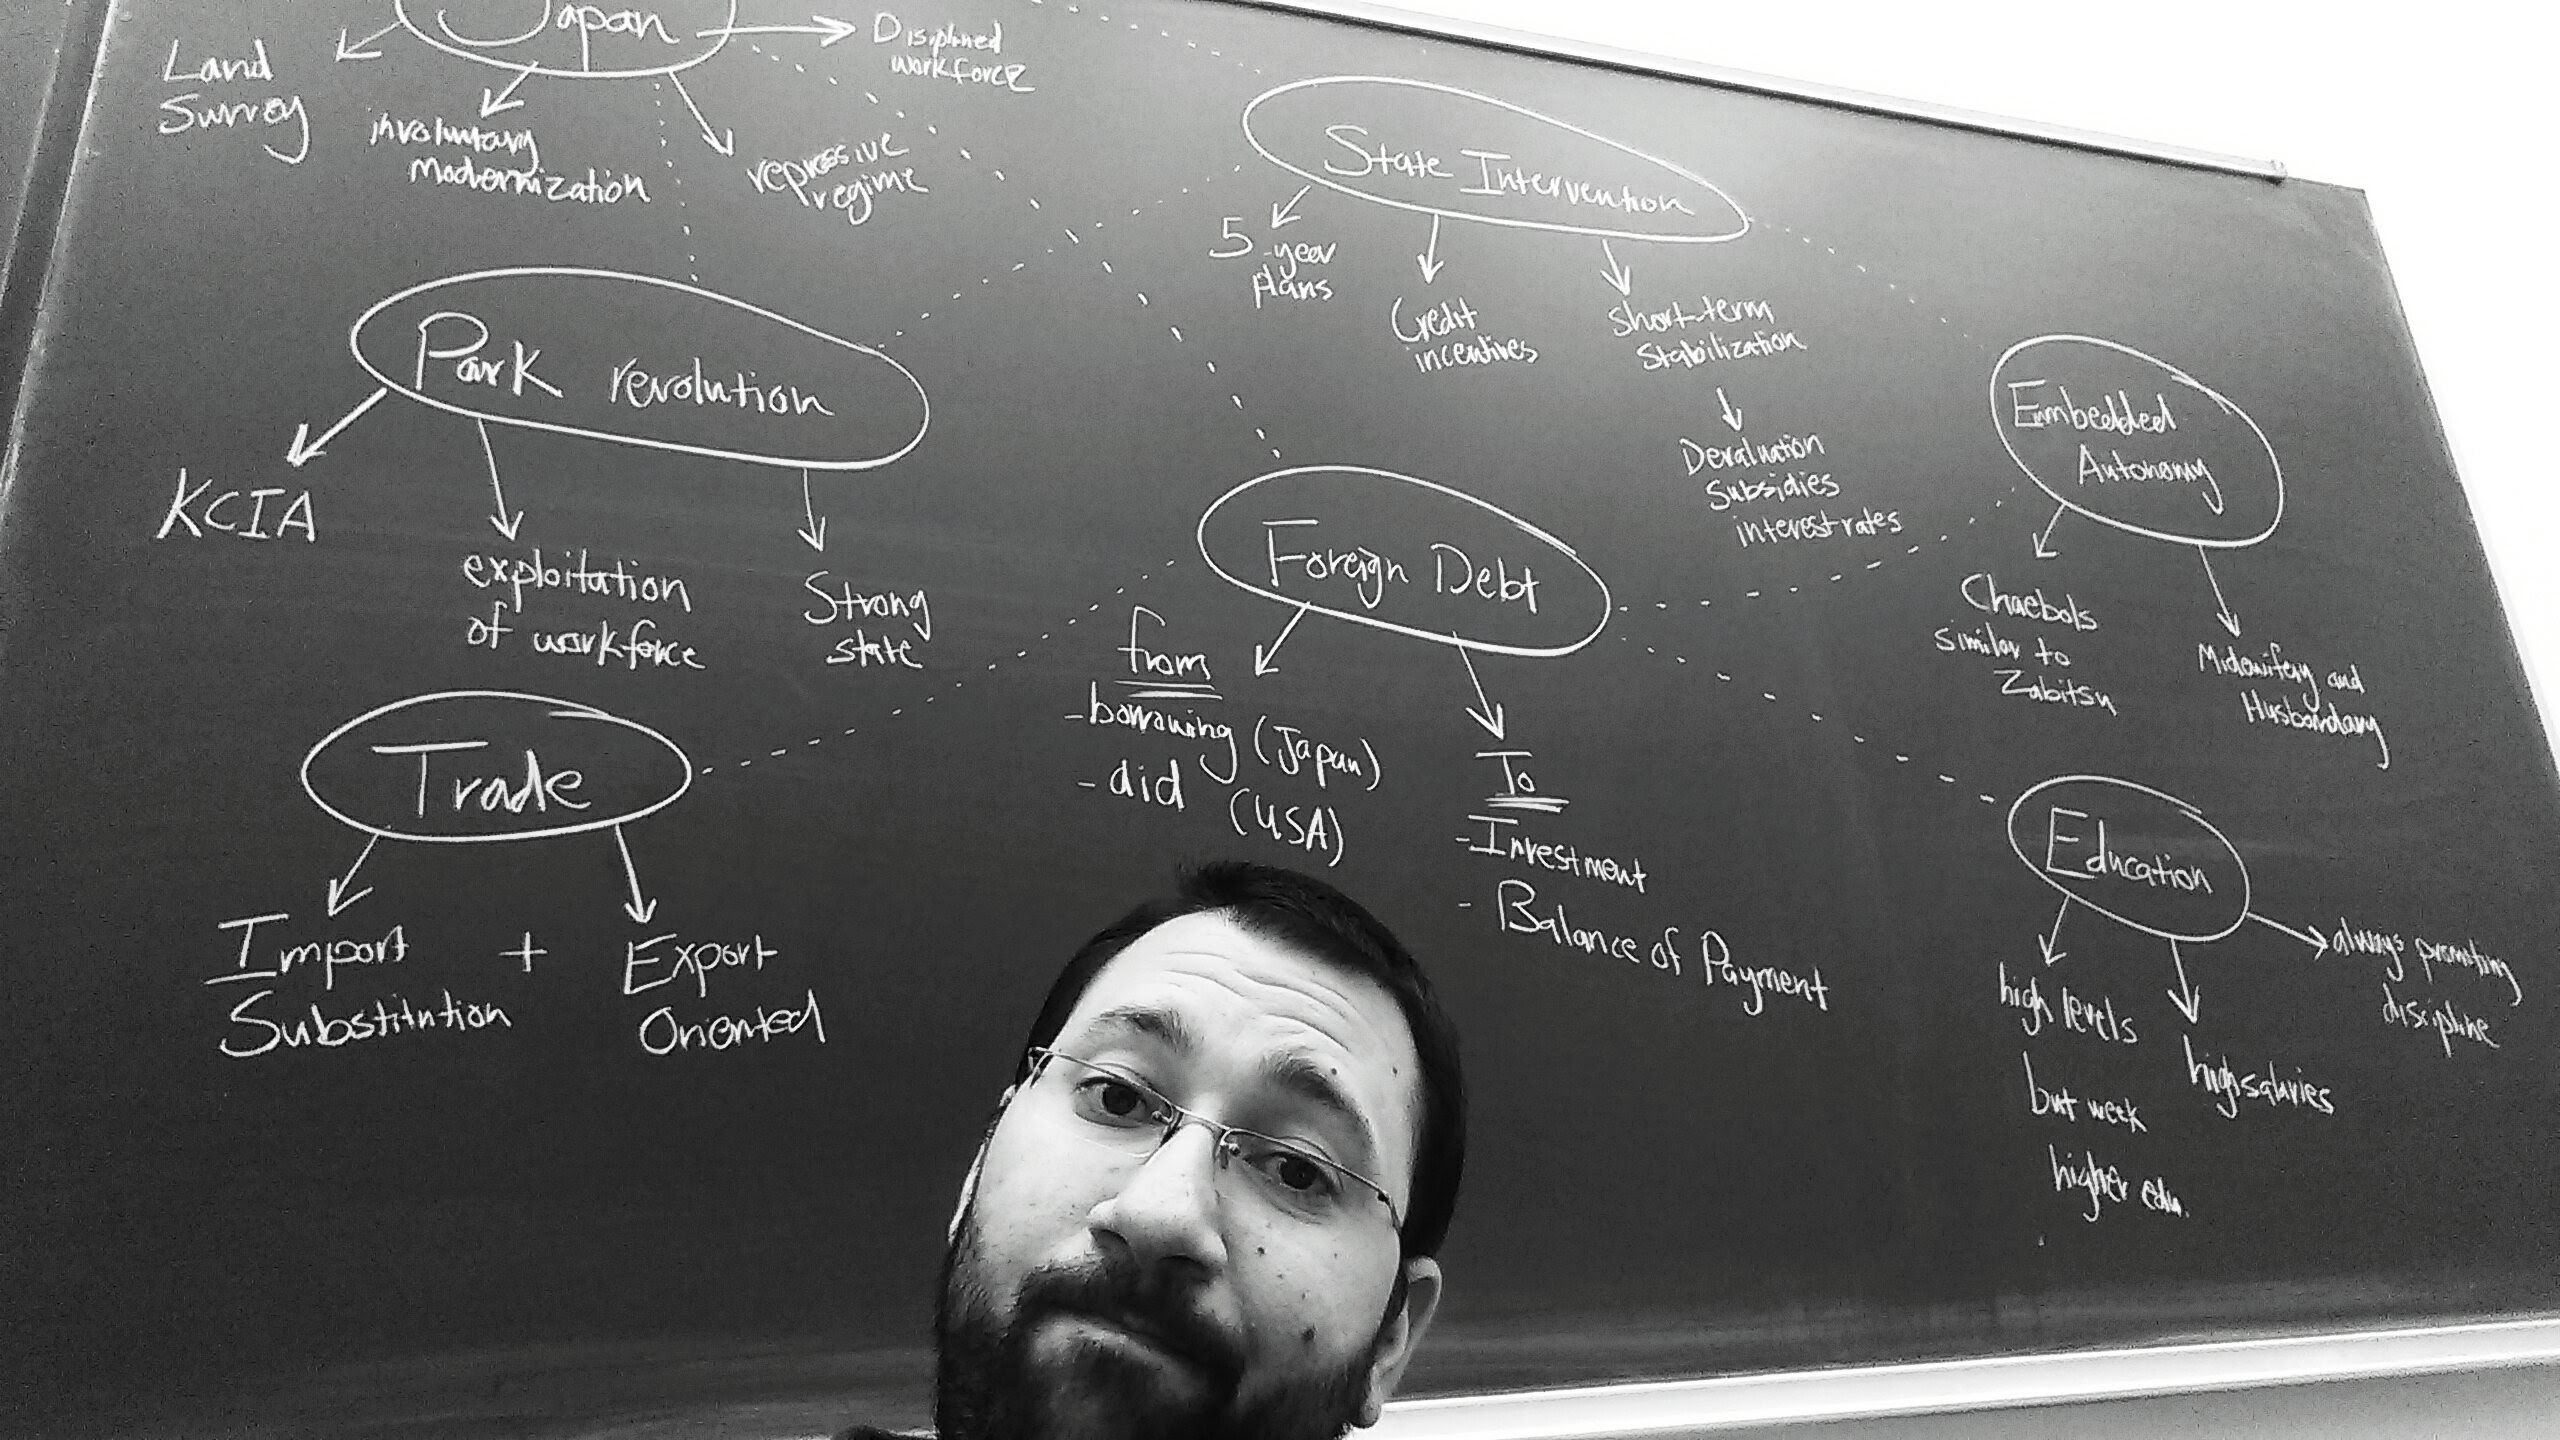 Japan
Disiplined
workforce
Land
Survey
involuntary
modernization
repressive
regime
State Intervention
5-year
plans
Credit
incentives
short-term
stabilization
Devaluation
Subsidies
interest rates
Park revolution
KCIA
exploitation
of workforce
Strong
state
Embedded
Autonomy
Chaebols
similar to
Zabitsu
Midwifery and
Husbandary
Foreign Debt
from
- borrowing (Japan)
- aid (USA)
To
- Investment
- Balance of Payment
Trade
Import + Export
Substitution Oriented
Education
high levels
but week
higher edu.
high salaries
always promoting
discipline